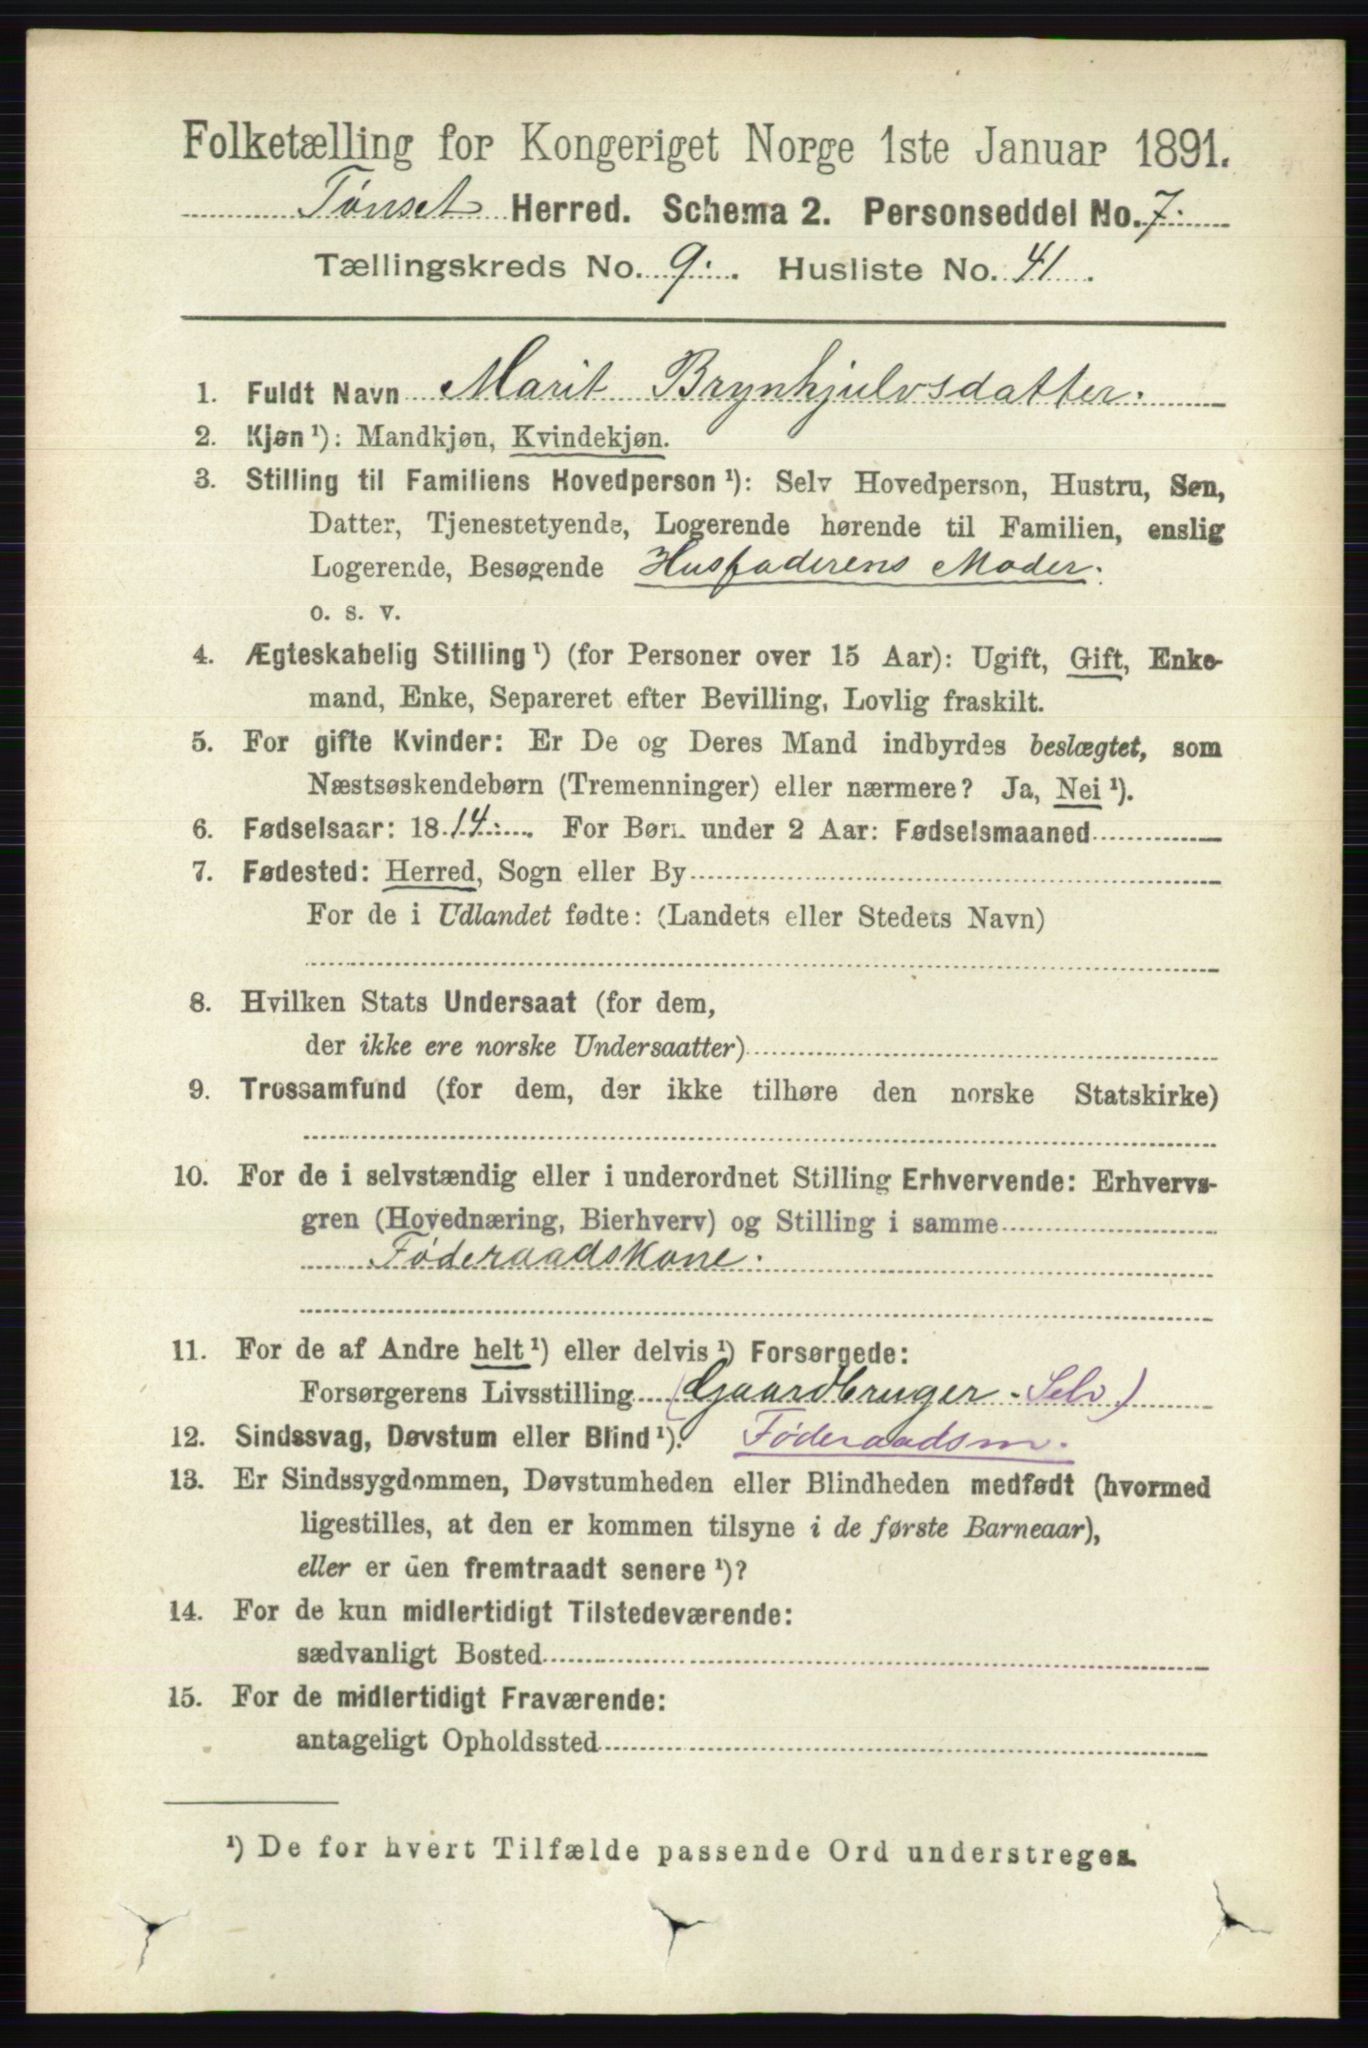 Folketælling for Kongeriget Norge 1ste Januar 1891.
Tønset Herred. Schema 2. Personseddel No. 7.
Tællingskreds No. 9. Husliste No. 41.
1. Fuldt Navn Marit Brynhjulvsdatter.
2. Kjøn¹): Mandkjøn, Kvindekjøn.
3. Stilling til Familiens Hovedperson¹): Selv Hovedperson, Hustru, Søn,
Datter, Tjenestetyende, Logerende hørende til Familien, enslig
Logerende, Besøgende Husfaderens Moder.
o. s. v.
4. Ægteskabelig Stilling¹) (for Personer over 15 Aar): Ugift, Gift, Enke-
mand, Enke, Separeret efter Bevilling, Lovlig fraskilt.
5. For gifte Kvinder: Er De og Deres Mand indbyrdes beslægtet, som
Næstsøskendebørn (Tremenninger) eller nærmere? Ja, Nei¹).
6. Fødselsaar: 1814. For Børn under 2 Aar: Fødselsmaaned
7. Fødested: Herred, Sogn eller By
For de i Udlandet fødte: (Landets eller Stedets Navn)
8. Hvilken Stats Undersaat (for dem,
der ikke ere norske Undersaatter)
9. Trossamfund (for dem, der ikke tilhøre den norske Statskirke)
10. For de i selvstændig eller i underordnet Stilling Erhvervende: Erhvervs-
gren (Hovednæring, Bierhverv) og Stilling i samme
Føderaadskone.
11. For de af Andre helt¹) eller delvis¹) Forsørgede:
Forsørgerens Livsstilling (Gaardbruger - Selv)
12. Sindssvag, Døvstum eller Blind¹). Føderaadsm.
13. Er Sindssygdommen, Døvstumheden eller Blindheden medfødt (hvormed
ligestilles, at den er kommen tilsyne i de første Barneaar),
eller er den fremtraadt senere¹)?
14. For de kun midlertidigt Tilstedeværende:
sædvanligt Bosted
15. For de midlertidigt Fraværende:
antageligt Opholdssted
¹) De for hvert Tilfælde passende Ord understreges.